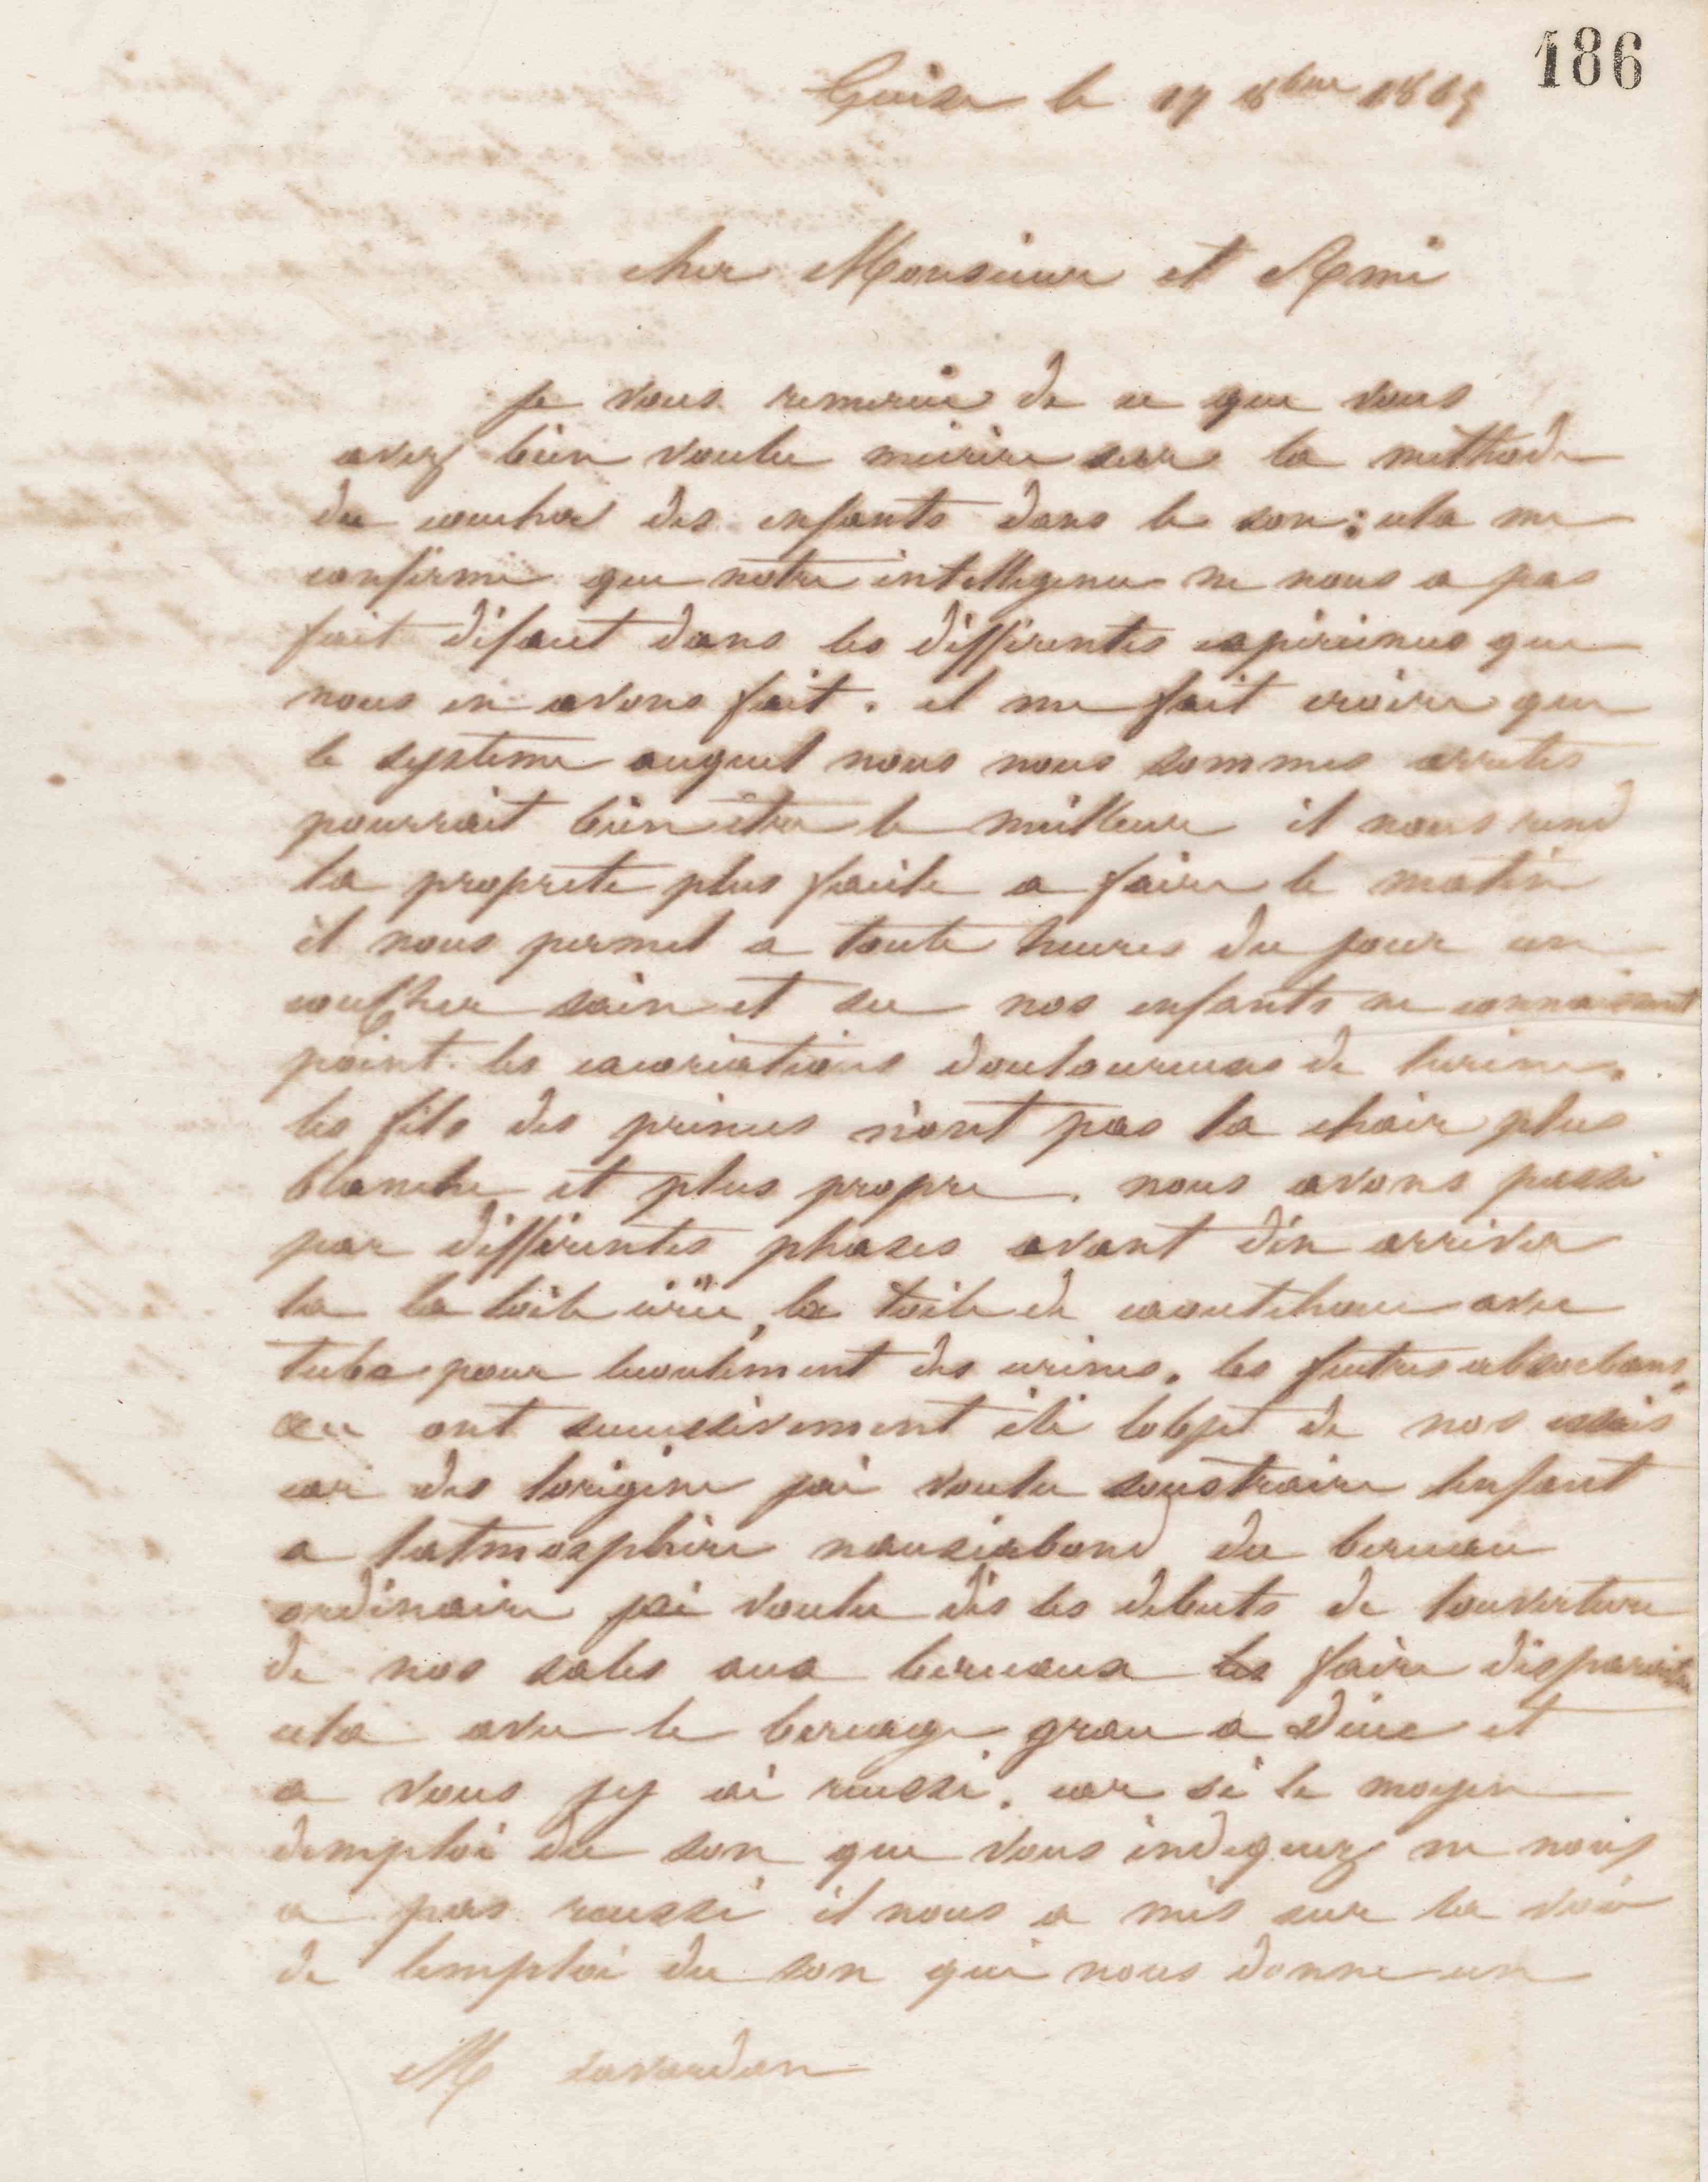 186
Guise le 17 8bre 1865
cher Monsieur et Ami
je vous remercie de ce que vous
avez bien voulu mécrire sur la méthode
du coucher des enfants dans le son; cela me
confirme que notre intelligence ne nous a pas
fait défaut dans les différentes expériences que
nous en avons fait. et me fait croire que
le système auquel nous nous sommes arretés
pourrait bien être le meilleur il nous rend
la propreté plus facile a faire le matin
il nous permet a toute heures du jour un
coucher sain et sec nos enfants ne connaissent
point les excoriations douloureuses de lurine.
les fils des princes n'ont pas la chair plus
blanche et plus propre. nous avons passé
par différentes phases avant d'en arriver
la la toile cirée, la toile de caoutchouc avec
tube pour lecoulement des urines. les feutres absorbans,
ont successivement été lobjet de nos essais
car des lorigine jai voulu soustraire lenfant
a latmosphère nauséabond du berceau
ordinaire jai voulu dès les debuts de louverture
de nos sales aux berceaux les faire disparaitre
cela avec le bercage grace a Dieu et
a vous jy ai reussi. car si le moyen
demploi du son que vous indiquez ne nous
a pas reussi il nous a mis sur la voie
de lemploi du son qui nous donne un
M Savardan